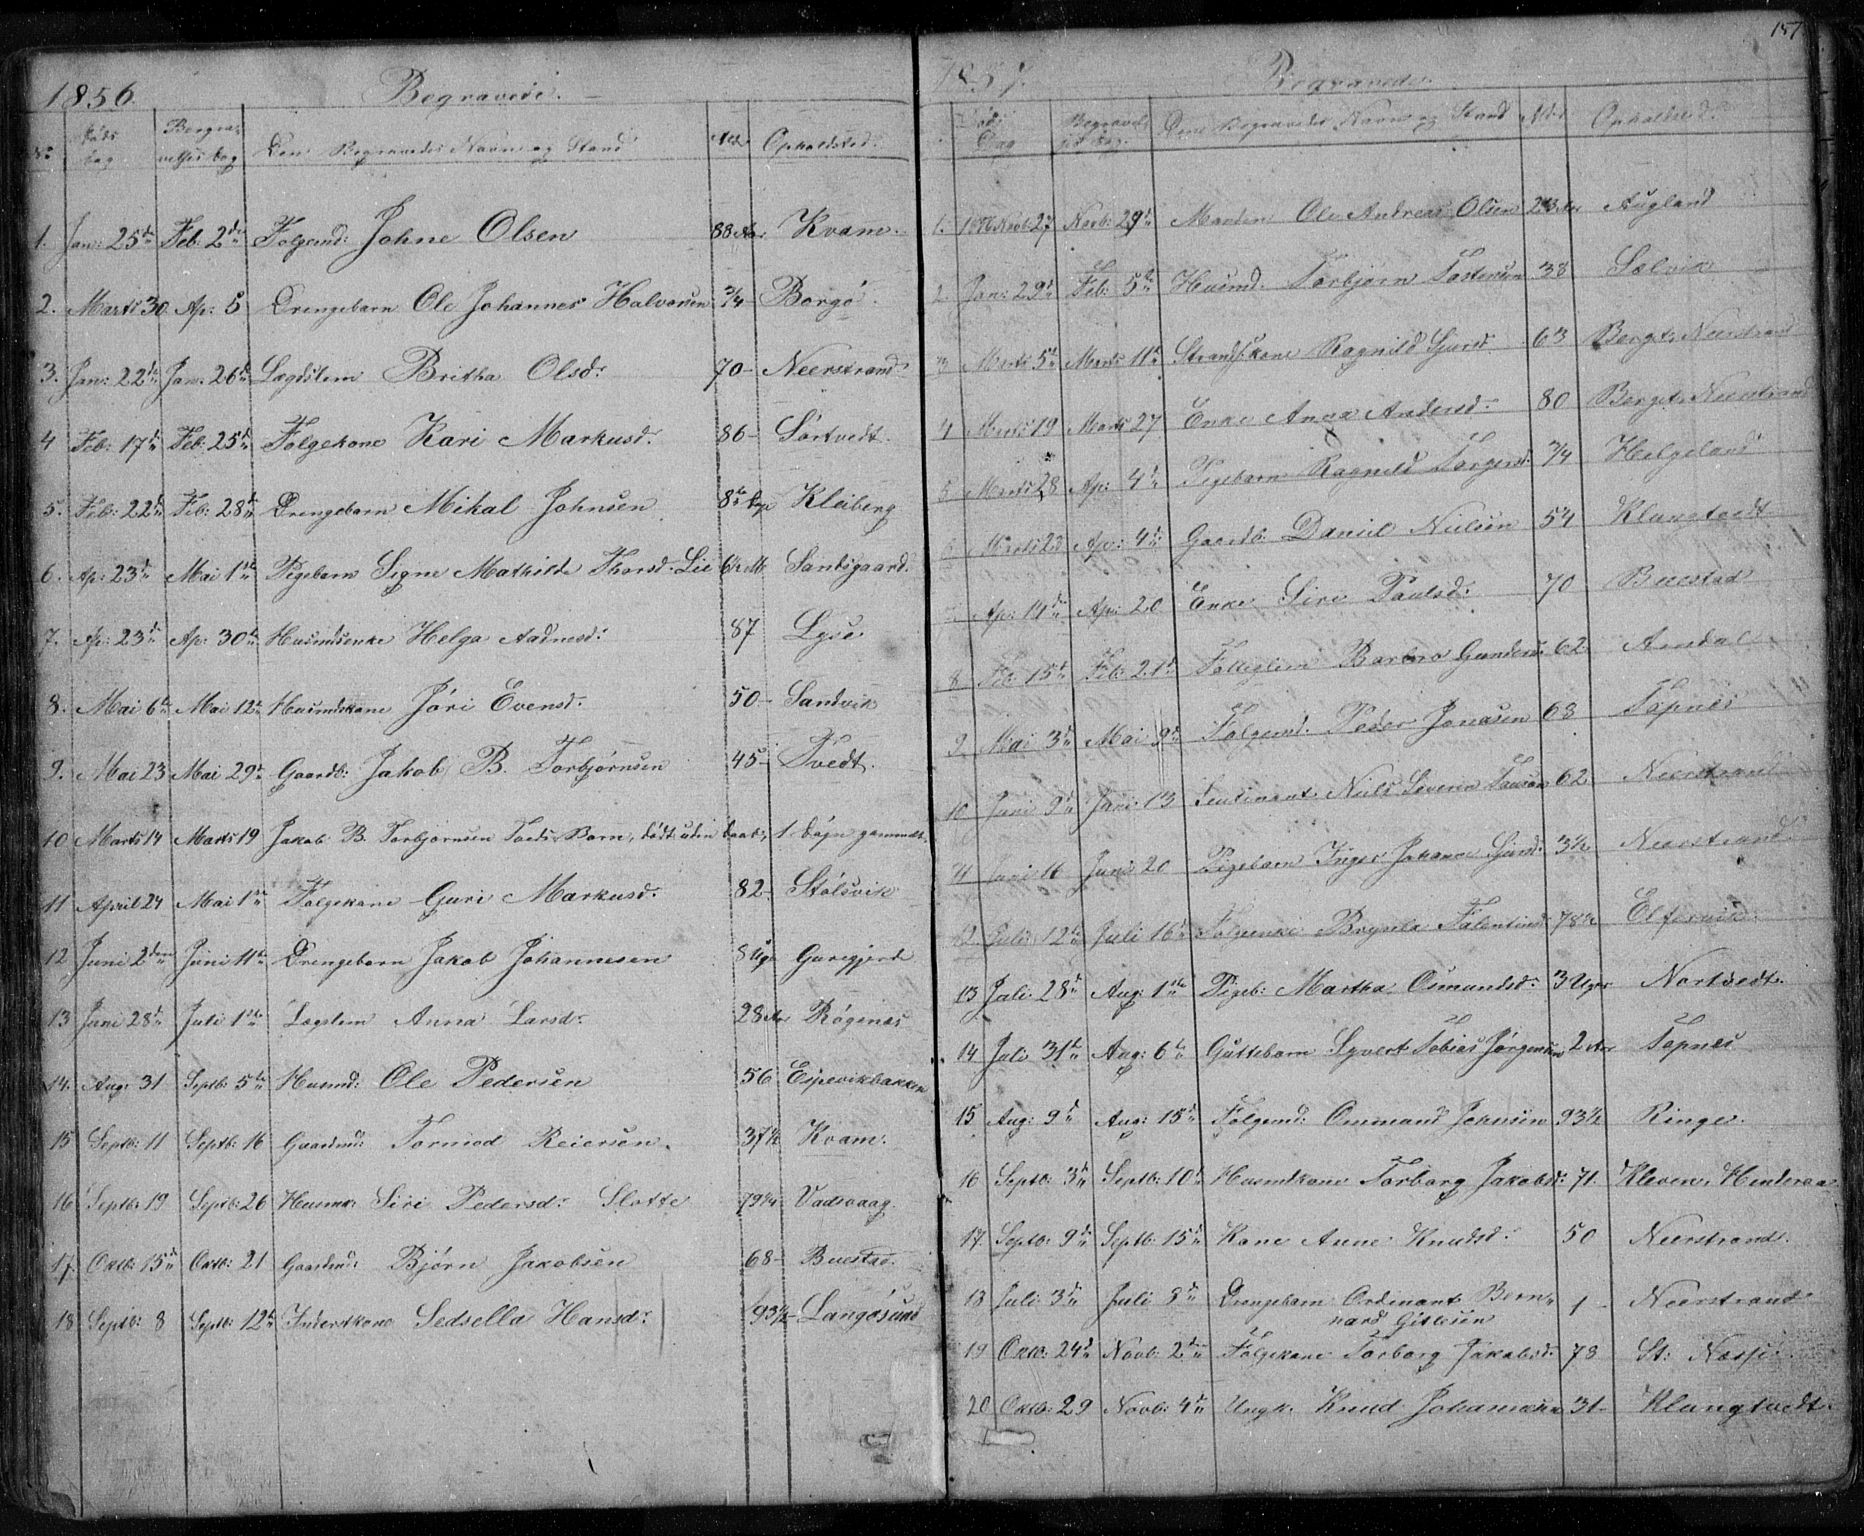 1856 Begravede.
No Døds dag Begravelses dag Den Begravedes Navn og Stand Alder Opholdsted
1. Jan: 25de Feb: 2den Folgemd: Johne Olsen 88 Aar Kvam.
2. Marts 30 Ap: 5 Drengebarn Ole Johannes Halvorsen 3/4 Borgö.
3. Jan: 22de Jan: 26de Lægdslem Britha Olsd: 70 Neerstrand
4 Feb: 17de Feb: 25de Folgekone Kari Markusd: 86 Sørtvedt.
5. Feb: 22de Feb: 28de Drengebarn Mikal Johnsen 8te Dge Kleiberg
6. Ap: 23de Mai 1ste Pigebarn Signe Mathilde Thorsd: Lie Sandsgaard.
7. Ap: 23de Ap: 30te Husmdsenke Helga Aadnesd: 87 Lyse
8. Mai 6te Mai 12te Husmdskone Jøri Evensd: 50 Sandvik
9. Mai 23 Mai 29de Gaardb: Jakob B. Torbjørnsen 45 Tvedt.
10 Marts 14 Marts 19 Jakob B. Torbjørnsen Tveds Barn, dødt uden Daab, 1 døgn gammelt.
11 April 24 Mai 1ste Folgekone Guri Markusd: 82 Stølsvik
12 Juni 2den Juni 11te Drengebarn Jakob Johannesen 8 Ug: Guregjerd
13 Juni 28de Juli 1ste Lægslem Anna Larsd: 28 Aar Røgenæs
14. Aug: 31 Septb: 5te Husmd: Ole Pedersen 56 Espevikbakken
15 Septb: 11 Septb: 16 Gaardmd: Tormod Reiersen. 37½ Kvam.
16 Septb: 19 Septb: 26 Husmk: Siri Pedersd: Slotte 79¼ Vadsvaag.
17. Oktb: 15de Oktb: 21 Gaardmd: Bjørn Jakobsen 68 Buestad.
18 Septb: 8 Septb: 12te Inderstkone Sedsella Hansd: 93½ Langøsund
157
1857. Begravede.
Døds Dag Begravelses Dag. Den Begravedes Navn og Stand Alder Opholdsted:
1. 1856 Novb: 27 Novb: 29de Manden Ole Andreas Olsen 23 Aar Augland
2 Jan: 29de Feb: 5te Husmd: Torbjørn Tostensen 38 Sælvik
3 Marts 5te Marts 11te Strandskone Ragnild Sjurd 63 Berget, Neerstrand
4 Marts 19 Marts 27 Enke Anna Andersd: 80 Berget, Neerstrand
5 Marts 28 Ap: 4de Pigebarn Ragnild Torgersd: 3/4 Helgeland
6 Marts 23 Ap: 4de Gaardb: Daniel Nielsen 54 Klungtvedt
Ap: 14de Ap: 20 Enke Siri Paulsd: 70 Buestad
8 Feb: 15de Feb: 21de Fattiglem Barbro Gunders 62 Amdal
9 Mai 3de Mai 9de Folgemd: Peder Jonasen 68 Topnes
10 Juni 9de Juni 13 Leutinant Niels Severin 62 Neerstrand
11 Juni 16 Juni 20 Pigebarn Inger Johanna Sjurd: 3½ Neerstrand
12. Juli 12te Juli 16de Folgeenke Brynla Falentind: 78½
13 Juli 28de Aug: 1ste Pigeb: Martha Osmundsd: 3 Uger Nortvedt.
14 Juli 31te Aug: 6te Guttebarn Syvert Tobias Jørgensen 2 Aar Topnes
15 Aug: 9de Aug: 15de Folgemd: Ommund Johnsen 93½ Ringe.
16 Septb: 3de Septb: 10de Husmdkone Torborg Jakobsd: 71. Kleven, Hinderaa
17 Septb: 9de Septb: 15de Kone Anne Knudsd: 50 Neerstrand.
18 Juli 3de Juli 8de Drengebarn Ordinant Bern-
nard Gitlesen 1 Neerstrand
19 Oktb: 24de Novb: 2den Folgekone Torborg Jakobsd: 78 St: Næsse.
20 Oktb: 29 Novb: 4de Ungk: Knud Johannesen 31 Klungtvedt.